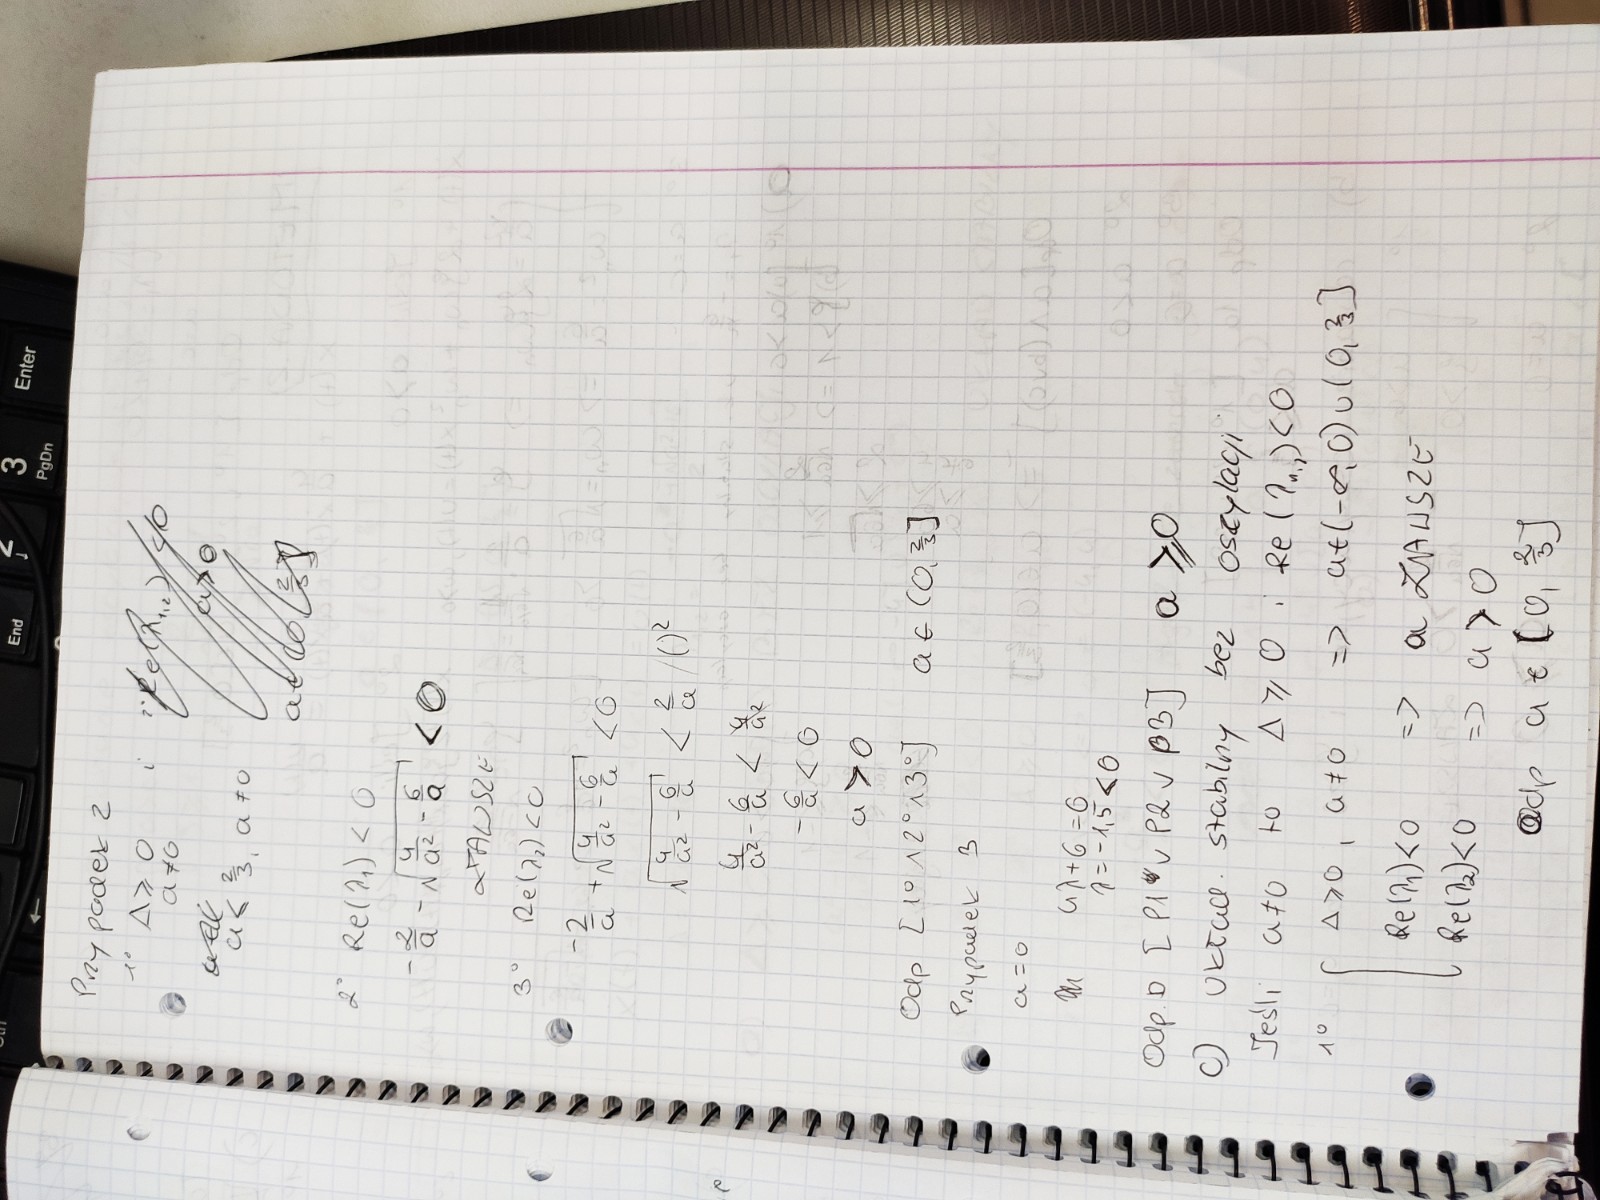 Przypadek 2
1° Δ≥0 i
a≠0
a≤2/3, a≠0
Re(λ1,2)<0
a>0
a∈(0,2/3]
2° Re(λ1)<0
-2/a - √(4/a² - 6/a) < 0
ZAWSZE
3° Re(λ2)<0
-2/a + √(4/a² - 6/a) < 0
√(4/a² - 6/a) < 2/a /()²
4/a² - 6/a < 4/a²
-6/a < 0
a > 0
Odp [1° ∧ 2° ∧ 3°] a∈(0, 2/3]
Przypadek 3
a=0
4λ+6=0
λ=-1,5<0
Odp. b [P1 ∨ P2 ∨ P3] a ≥ 0
c) Układ. stabilny bez oscylacji
Jeśli a≠0 to Δ≥0 i Re(λ1,2)<0
1° Δ≥0, a≠0 => a∈(-∞,0)∪(0,2/3]
Re(λ1)<0 => a ZAWSZE
Re(λ2)<0 => a>0
Odp a∈[0, 2/3]
Enter
3
PgDn
2
End
Ctrl